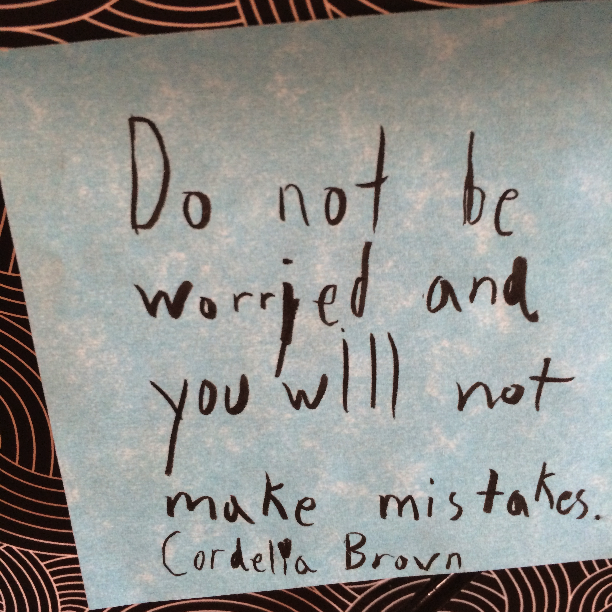 Do not be
worrjed and
you will not
make mistakes.
Cordelia Brovn